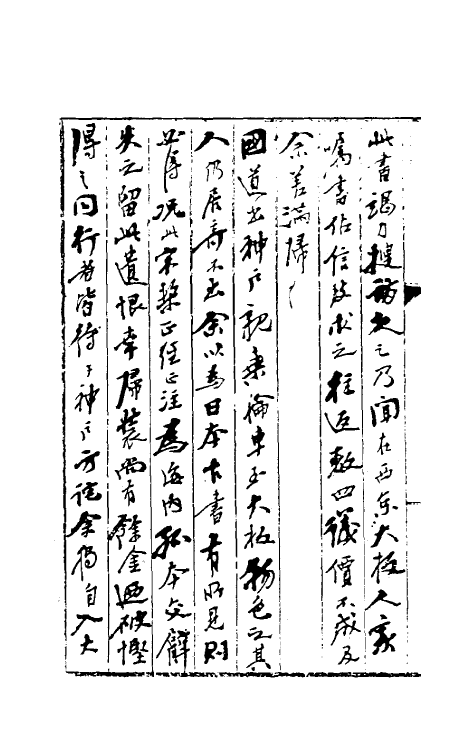 此書竭力搜訪久之乃聞在西京大板人家
囑書估信致求之往返數四議價不成及
余差滿歸
國道出神戶親乘輪車至大板物色之其
人仍居奇不出余以為日本古書有所見則
必得況此宋槧正經正注為海內孤本交臂
失之留此遺恨幸歸裝尚有餘金迺破慳
得之同行者皆待於神戶方詫余獨自入大